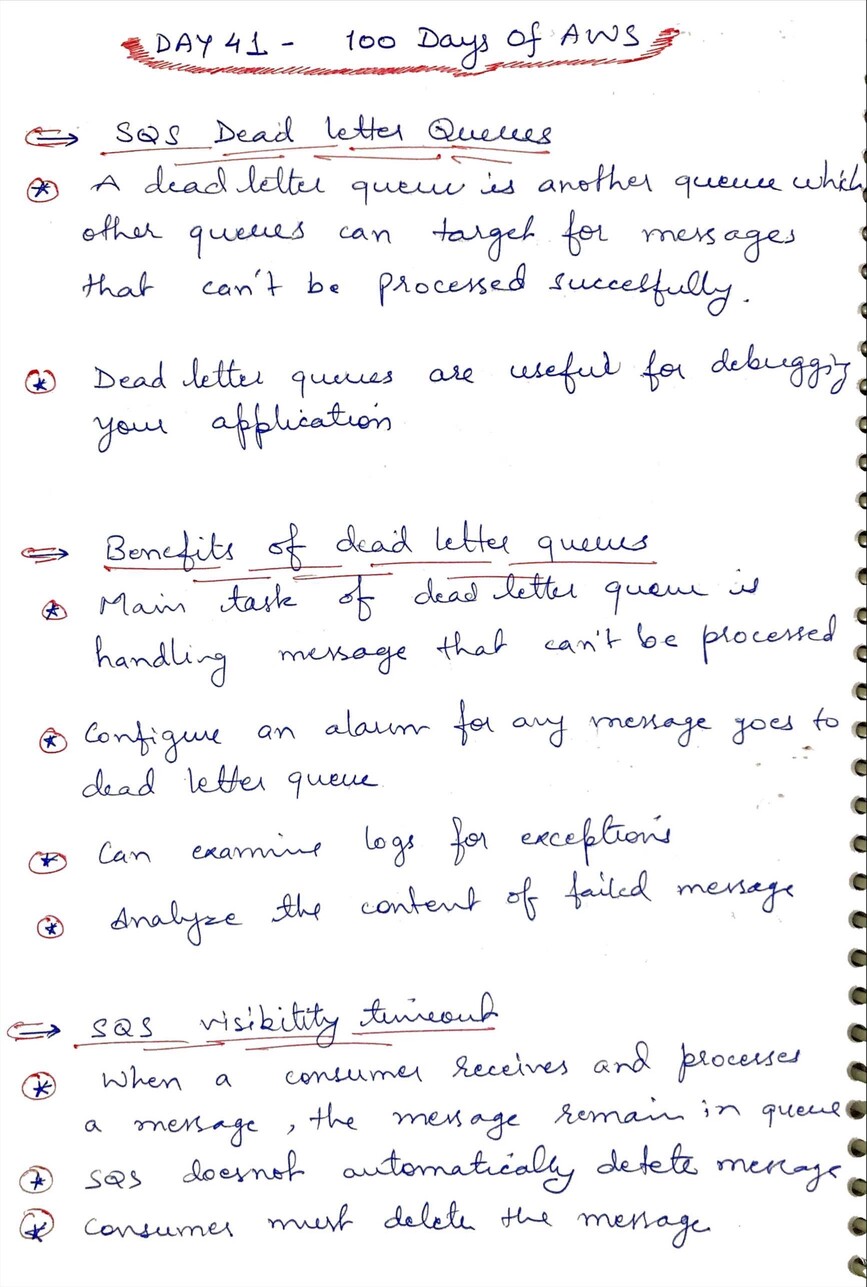 DAY 41 - 100 Days Of AWS
⇒ SQS Dead letter Queues
* A dead letter queue is another queue which
other queues can target for messages
that can't be processed succesfully.
* Dead letter queues are useful for debugging
your application
⇒ Benefits of dead letter queues
* Main task of dead letter queue is
handling message that can't be processed
* Configure an alarm for any message goes to
dead letter queue
* Can examine logs for exceptions
* Analyze the content of failed message
⇒ SQS visibility timeout
* When a consumer receives and processes
a message, the message remain in queue
* SQS doesnot automatically delete message
* Consumer must delete the message